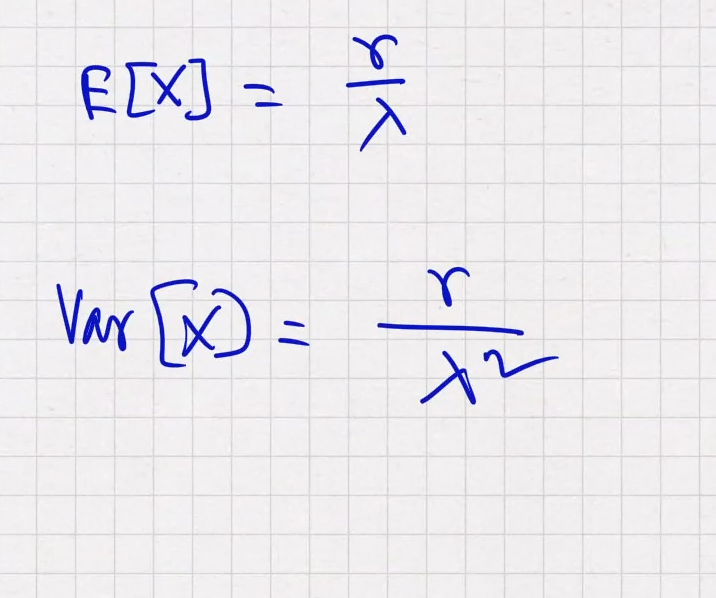 E[X] = r/λ
Var[X) = r/λ²